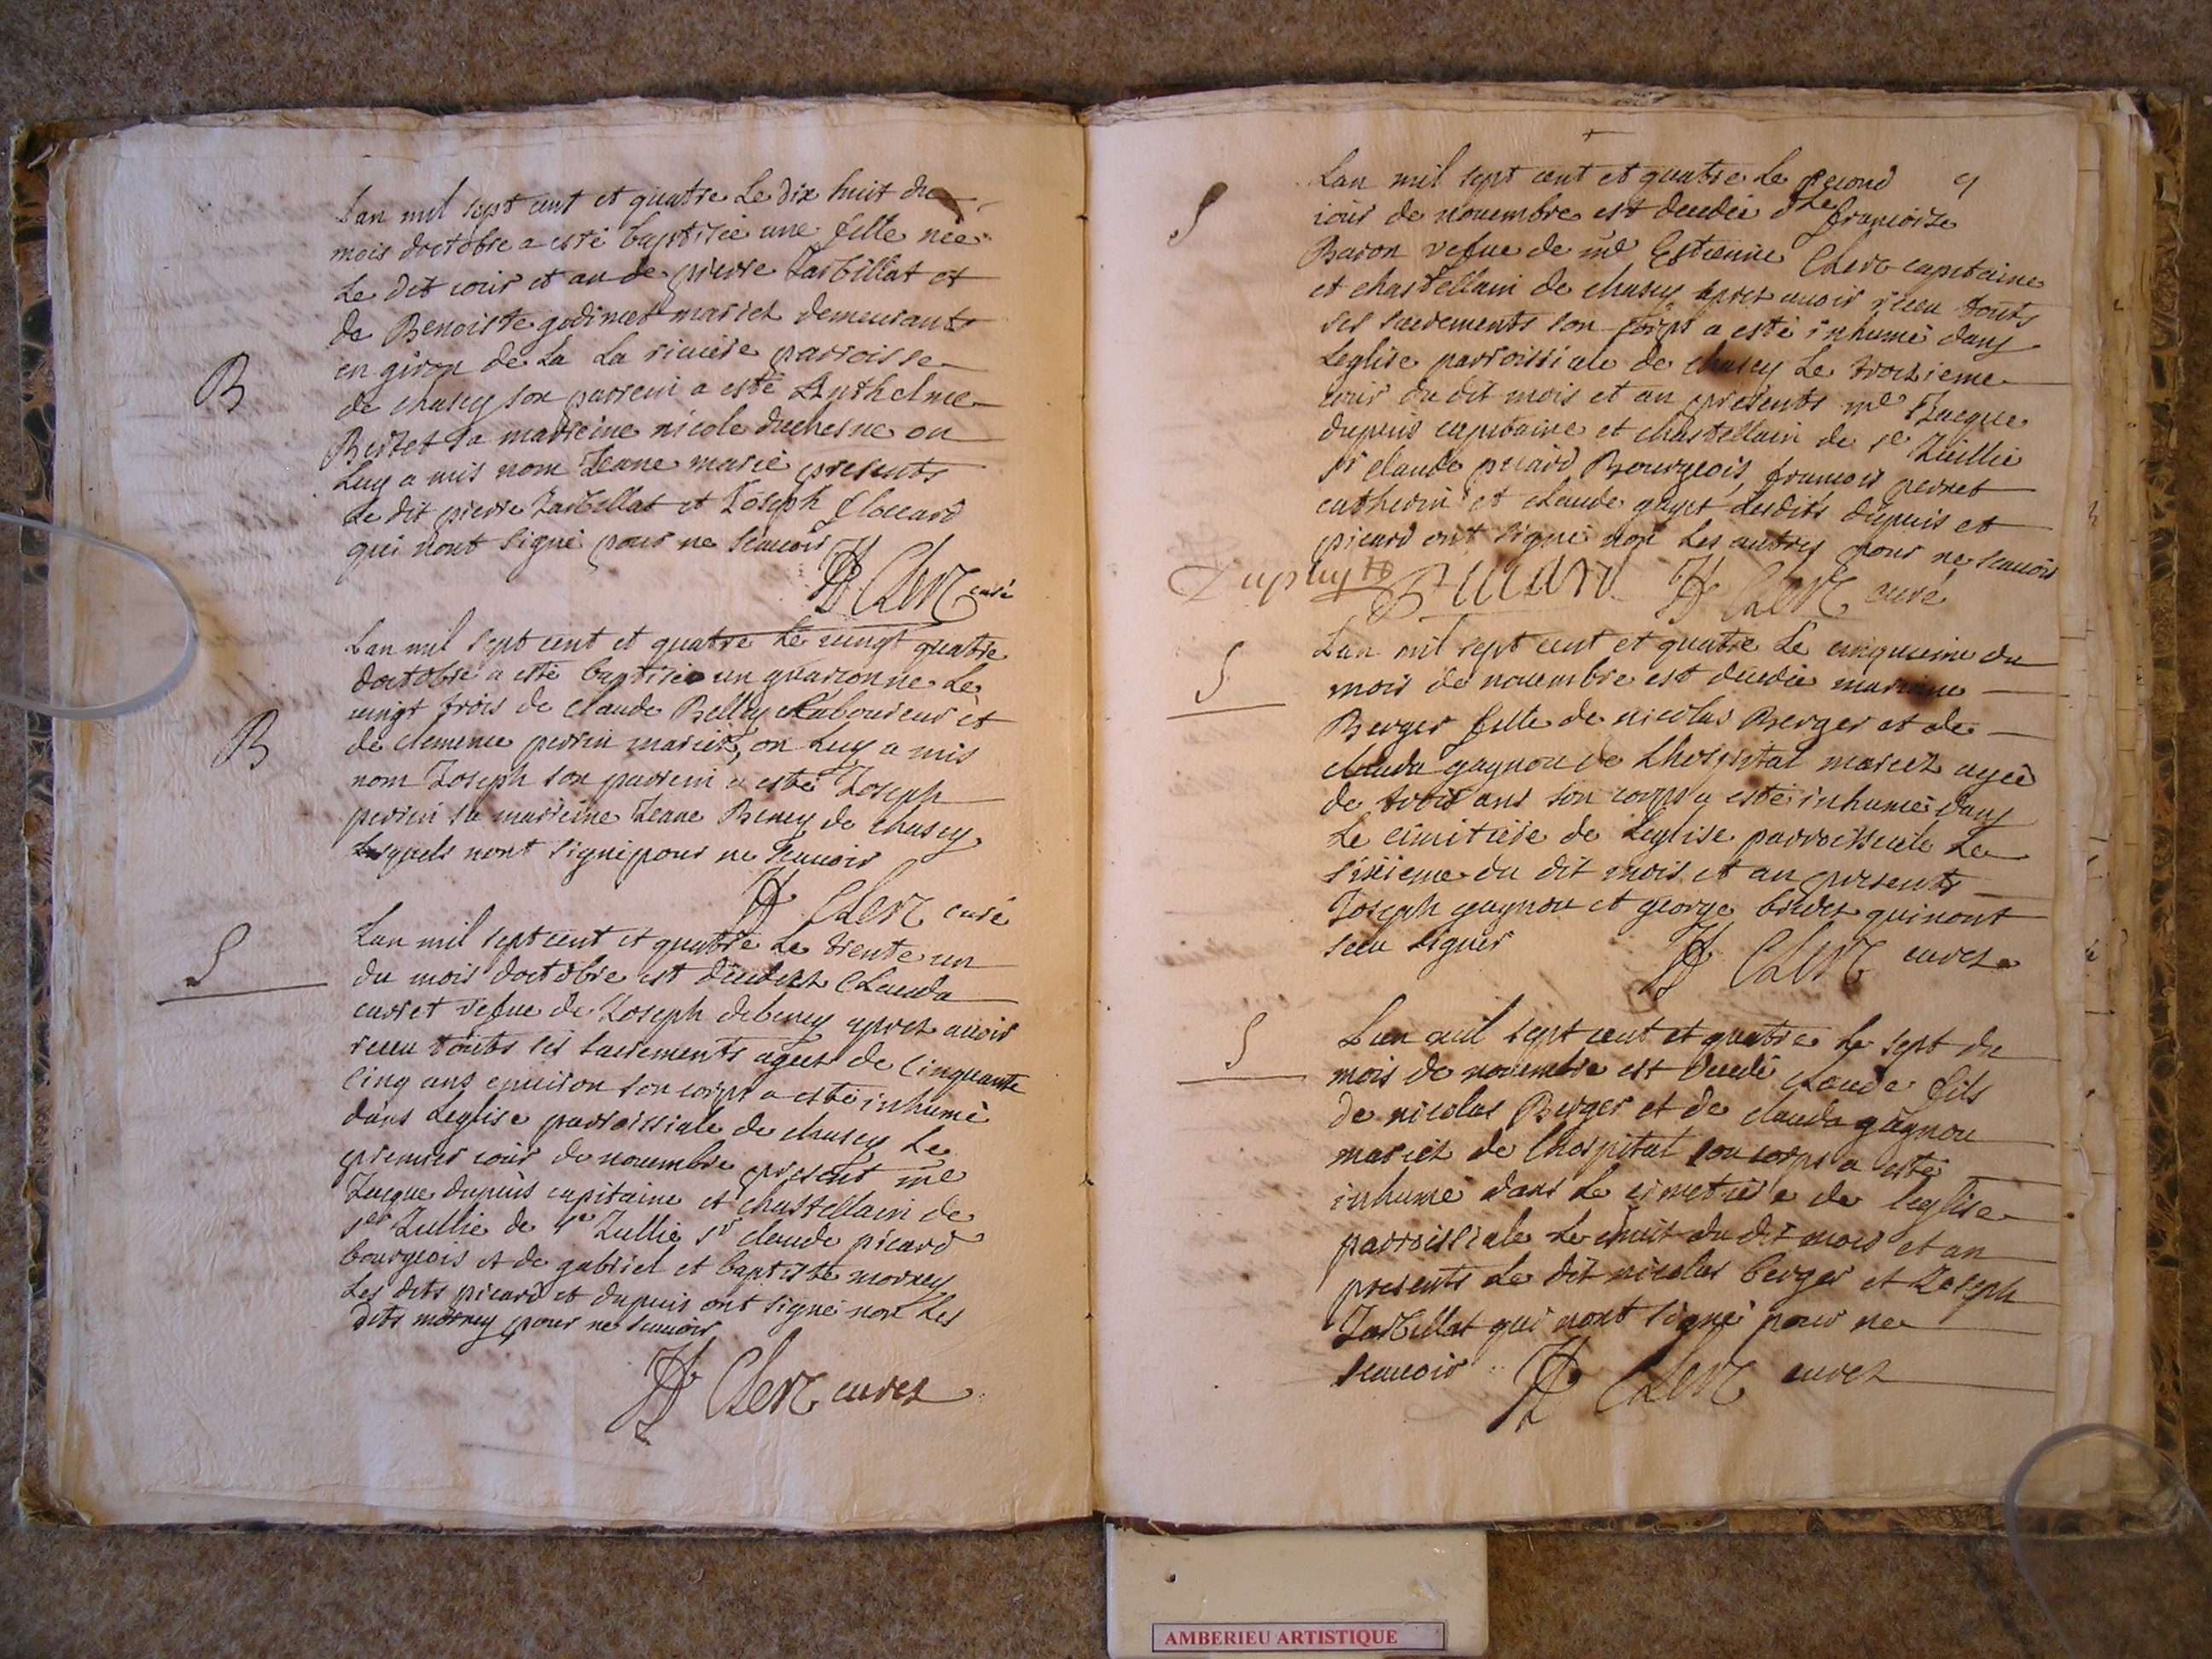 Lan mil sept cent et quatre Le dix huit du
mois doctobre a esté baptisée une fille née
Le dit iour et an de pierre Jarbillat et
de Benoiste godinet mariez demeurants
en giron de La La riuiere parroisse
B
de chasey son parrein a esté Anthelme
Berzet sa marreine nicole duchesne on
Luy a mis nom Jeane marie presents
Le dit pierre Jarbillat et Joseph floccard
qui nont signé pour ne scauoir
H Clerc curé
Lan mil sept cent et quatre Le vingt quatre
doctobre a esté baptisé un guarcon ne Le
vingt trois de claude Belley Laboureur et
B
de clemence perrin mariez, on Luy a mis
nom Joseph son parrein a esté Joseph
perrin sa marreine Jeane Beney de chasey
Lesquels nont signé pour ne scauoir
H Clerc curé
S
Lan mil sept cent et quatre Le trente un
du mois doctobre est decedez Clauda
curret vefue de Joseph debeney aprez auoir
receu touts ses sacrements agee de Cinquante
Cinq ans enuiron son corps a esté inhumé
dans Leglise parroissiale de chasey Le
premier iour de nouembre present me
Jacque dupuis capitaine et chastellain de
st Jullie de st Jullie sr claude picard
bourgeois et de gabriel et baptiste morney
Les dits picard et dupuis ont signé non Les
dits morney pour ne scauoir
H Clerc curez
Lan mil sept cent et quatre Le second
S
iour de nouembre est decedée dlle francoise
Baron vefue de me Estienne Clerc capitaine
et chastellain de chasey aprez auoir receu touts
ses sacrements son corps a esté inhumé dans
Leglise parroissiale de chasey Le troisieme
iour du dit mois et an presents me Jacque
dupuis capitaine et chastellain de st Jullie
sr claude picard Bourgeois, francois perret
catherin et claude guyet Lesdits dupuis et
picard ont signé non Les autres pour ne scauoir
Dupuy Picard H Clerc curé
Lan mil sept cent et quatre Le cinquieme du
S
mois de nouembre est decedée
Berger fille de nicolas Berger et de
clauda gagnou de Lhospital mariez agée
de trois ans son corps a esté inhumé dans
Le cimitiere de Leglise parroissiale Le
sixieme du dit mois et an presents
Joseph gagnou et george qui nont
sceu signer H Clerc curez
S
Lan mil sept cent et quatre Le sept du
mois de nouembre est decedé claude fils
de nicolas Berger et de clauda gagnou
mariez de Lhospital son corps a esté
inhumé dans Le cimetiere de leglise
parroissiale Le huit du dit mois et an
presents Le dit nicolas berger et Joseph
Jarbillat qui nont signé pour ne
scauoir H Clerc curez
AMBERIEU ARTISTIQUE